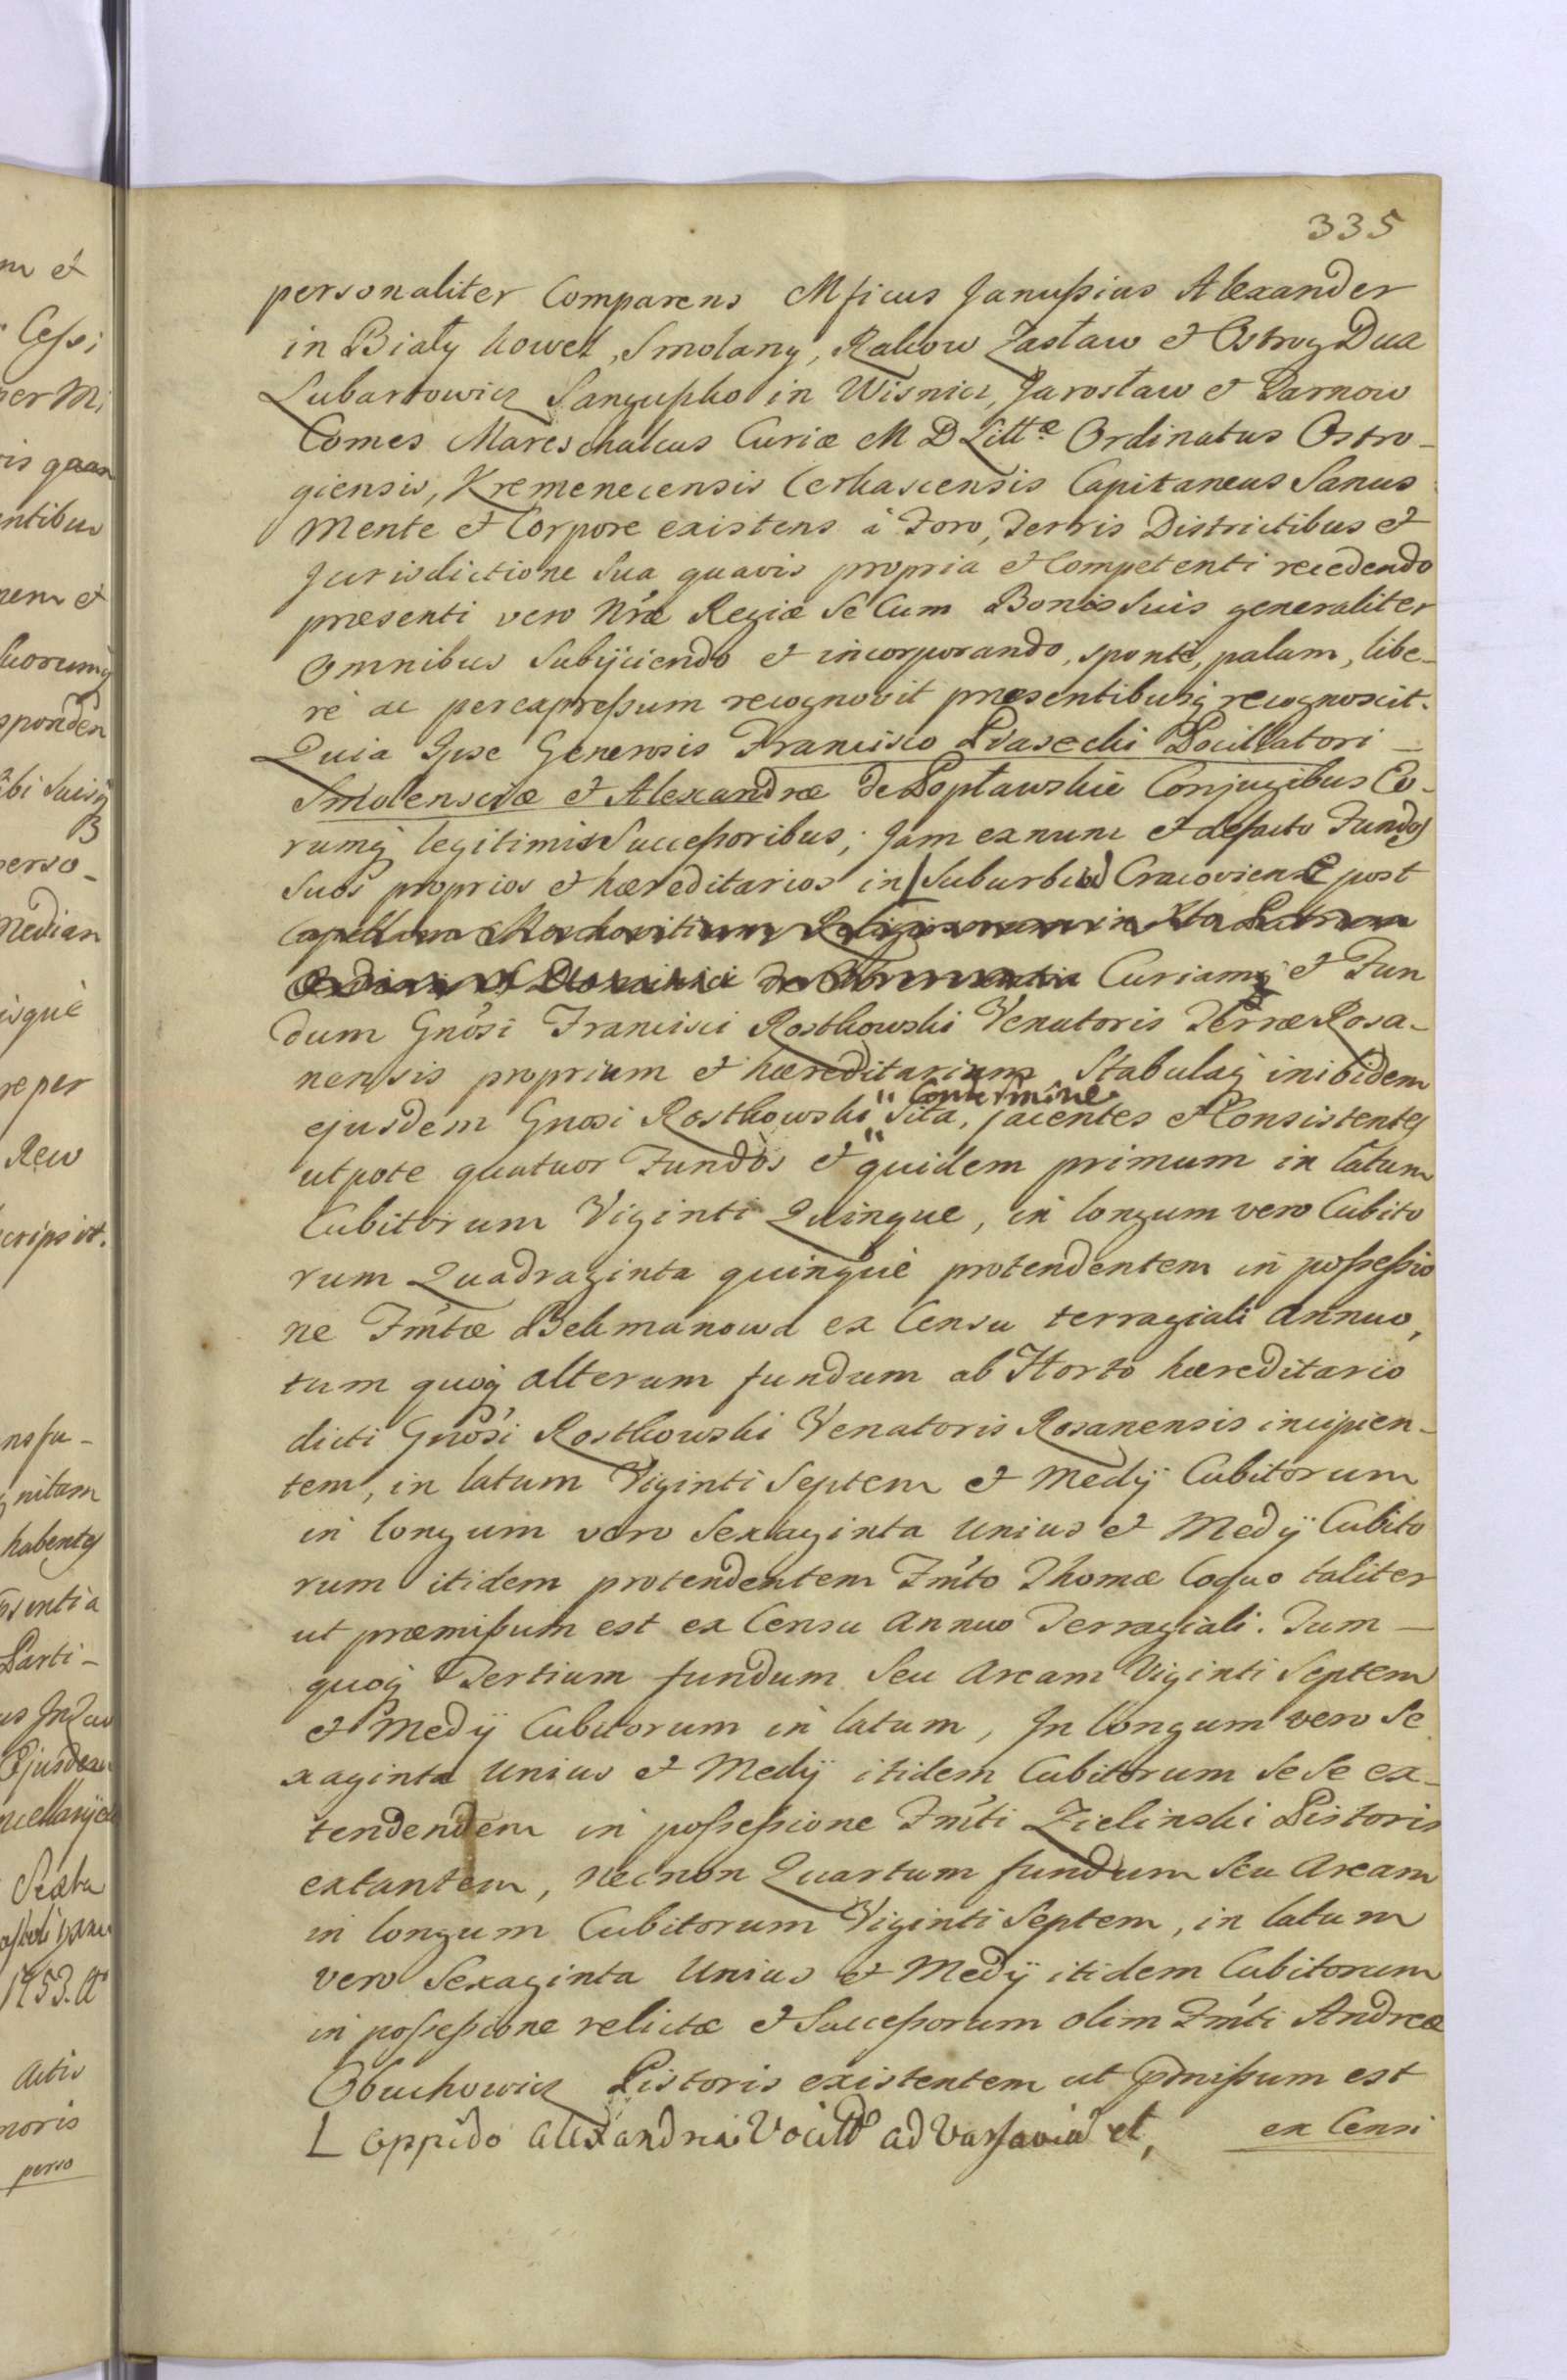 335
personaliter Comparens Mficus Janussius Alexander
in Biały Kowel, Smolany, Rakow Zasław et Ostrog Dux
Lubartowicz Sangusko in Wisnicz, Jarosław et Tarnow
Comes Mareschalcus Curiæ M D Littæ Ordinatus Ostro-
giensis, Kremenecensis Cerkascensis Capitaneus Sanus
Mente et Corpore existens à Foro, Terris Districtibus et
Jurisdictione Sua quavis propria et Competenti recedendo
præsenti vero Nræ Regiæ Se Cum Bonis Suis generaliter
Omnibus Subijciendo et incorporando, sponte, palam, libe-
rè ac per expressum recognovit præsentibusq recognoscit.
Quia Ipse Generosis Francisco Piasecki Pocillatori
Smolensciæ et Alexandræ de Popławskie Conjugibus Eo-
rumq legitimis Successoribus, Jam ex nunc et de facto Fundos
Suos proprios et hæreditarios in Suburbio Cracoviense post
Capellam
Curiamq et Fun
dum Gnosi Francisci Rostkowski Venatoris Terræ Rosa-
nensis proprium et hæreditarium Stabulaq inibidem
Contermine
ejusdem Gnosi Rostkowski Sita, jacentes et Consistentes
utpote quatuor Fundos et quidem primum in latum
Cubitorum Viginti Quinque, in longum vero Cubito
rum Quadraginta quinque protendentem in possessio
ne Fmtæ Bekmanowa ex Censu terragiali annuo,
tum quoq alterum fundum ab Horto hæreditario
dicti Gnosi Rostkowski Venatoris Rosanensis incipien-
tem, in latum Viginti Septem et Medij Cubitorum
in longum vero Sexaginta Unius et Medij Cubito
rum itidem protendentem Fmto Thomæ Coquo taliter
ut præmissum est ex Censu Annuo Terragiali. Tum
quoq Tertium fundum Seu Aream Viginti Septem
et Medij Cubitorum in latum, In longum vero Se
xaginta Unius et Medij itidem Cubitorum Se Se ex-
tendendem in possessione Fmti Zielinski Pistoris
extantem, necnon Quartum fundum Seu Aream
in longum Cubitorum Viginti Septem, in latum
vero Sexaginta Unius et Medij itidem Cubitorum
in possessione relictæ et Successorum olim Fmti Andreæ
Obuchowicz Pistoris existentem ut pmissum est
L oppido Alexandria Vocitto ad Varsaviã et,
ex Censi